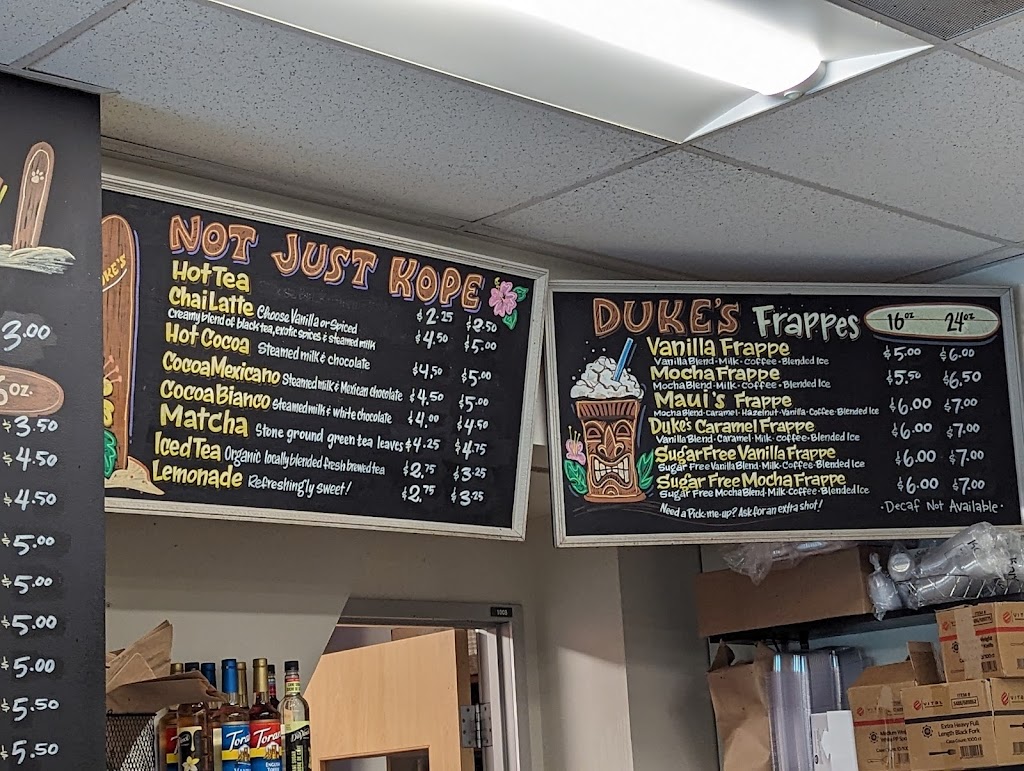 3.00
oz.
$3.50
$4.50
$4.50
$5.00
$5.00
$5.00
$5.00
$5.50
$5.50
DUKE'S
NOT JUST KOPE
Hot Tea $2.25 $2.50
Chai Latte Choose Vanilla or Spiced $4.50 $5.00
Creamy blend of black tea, exotic spices & steamed milk
Hot Cocoa Steamed milk & chocolate $4.50 $5.00
Cocoa Mexicano Steamed milk & Mexican chocolate $4.50 $5.00
Cocoa Bianco Steamed milk & white chocolate $4.00 $4.50
Matcha Stone ground green tea leaves $4.25 $4.75
Iced Tea Organic locally blended fresh brewed tea $2.75 $3.25
Lemonade Refreshingly sweet! $2.75 $3.25
DUKE'S Frappes 16oz 24oz
Vanilla Frappe $5.00 $6.00
Vanilla Blend · Milk · Coffee · Blended Ice
Mocha Frappe $5.50 $6.50
Mocha Blend · Milk · Coffee · Blended Ice
Maui's Frappe $6.00 $7.00
Mocha Blend · Caramel · Hazelnut · Vanilla · Coffee · Blended Ice
Duke's Caramel Frappe $6.00 $7.00
Vanilla Blend · Caramel · Milk · Coffee · Blended Ice
Sugar Free Vanilla Frappe $6.00 $7.00
Sugar Free Vanilla Blend · Milk · Coffee · Blended Ice
Sugar Free Mocha Frappe $6.00 $7.00
Sugar Free Mocha Blend · Milk · Coffee · Blended Ice
Need a Pick-me-up? Ask for an extra shot! · Decaf Not Available ·
1005
VITAL
VITAL
Extra Heavy Full
Length Black Fork